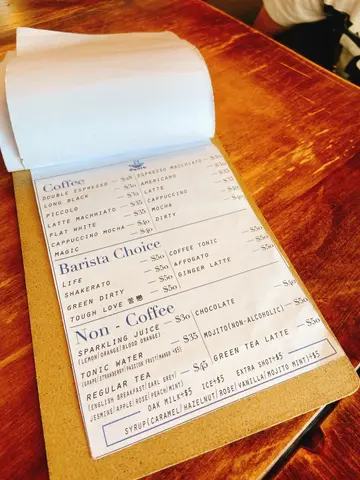 Coffee
DOUBLE ESPRESSO — $28
LONG BLACK — $30
PICCOLO — $30
LATTE MACHHIATO — $35
FLAT WHITE — $35
CAPPUCCINO MOCHA — $40
MAGIC — $40
ESPRESSO MACCHIATO — $30
AMERICANO — $30
LATTE — $35
CAPPUCCINO — $35
MOCHA — $40
DIRTY — $40
Barista Choice
LIFE — $50
SHAKERATO — $50
GREEN DIRTY — $50
TOUGH LOVE 苦戀 — $50
COFFEE TONIC — $50
AFFOGATO — $50
GINGER LATTE — $50
Non - Coffee
SPARKLING JUICE — $30
(LEMON/ORANGE/BLOOD ORANGE)
TONIC WATER — $35
(GRAPE/STRAWBERRY/PASSION FRUIT/MANGO +$5)
REGULAR TEA — $45
(ENGLISH BREAKFAST/EARL GREY/
JESMINE/APPLE/ROSE/PEACH/MINT)
CHOCOLATE — $40
MOJITO(NON-ALCOHOLIC) — $50
GREEN TEA LATTE — $50
OAK MILK+$5 ICE+$5 EXTRA SHOT+$5
SYRUP(CARAMEL/HAZELNUT/ROSE/VANILLA/MOJITO MINT)+$5